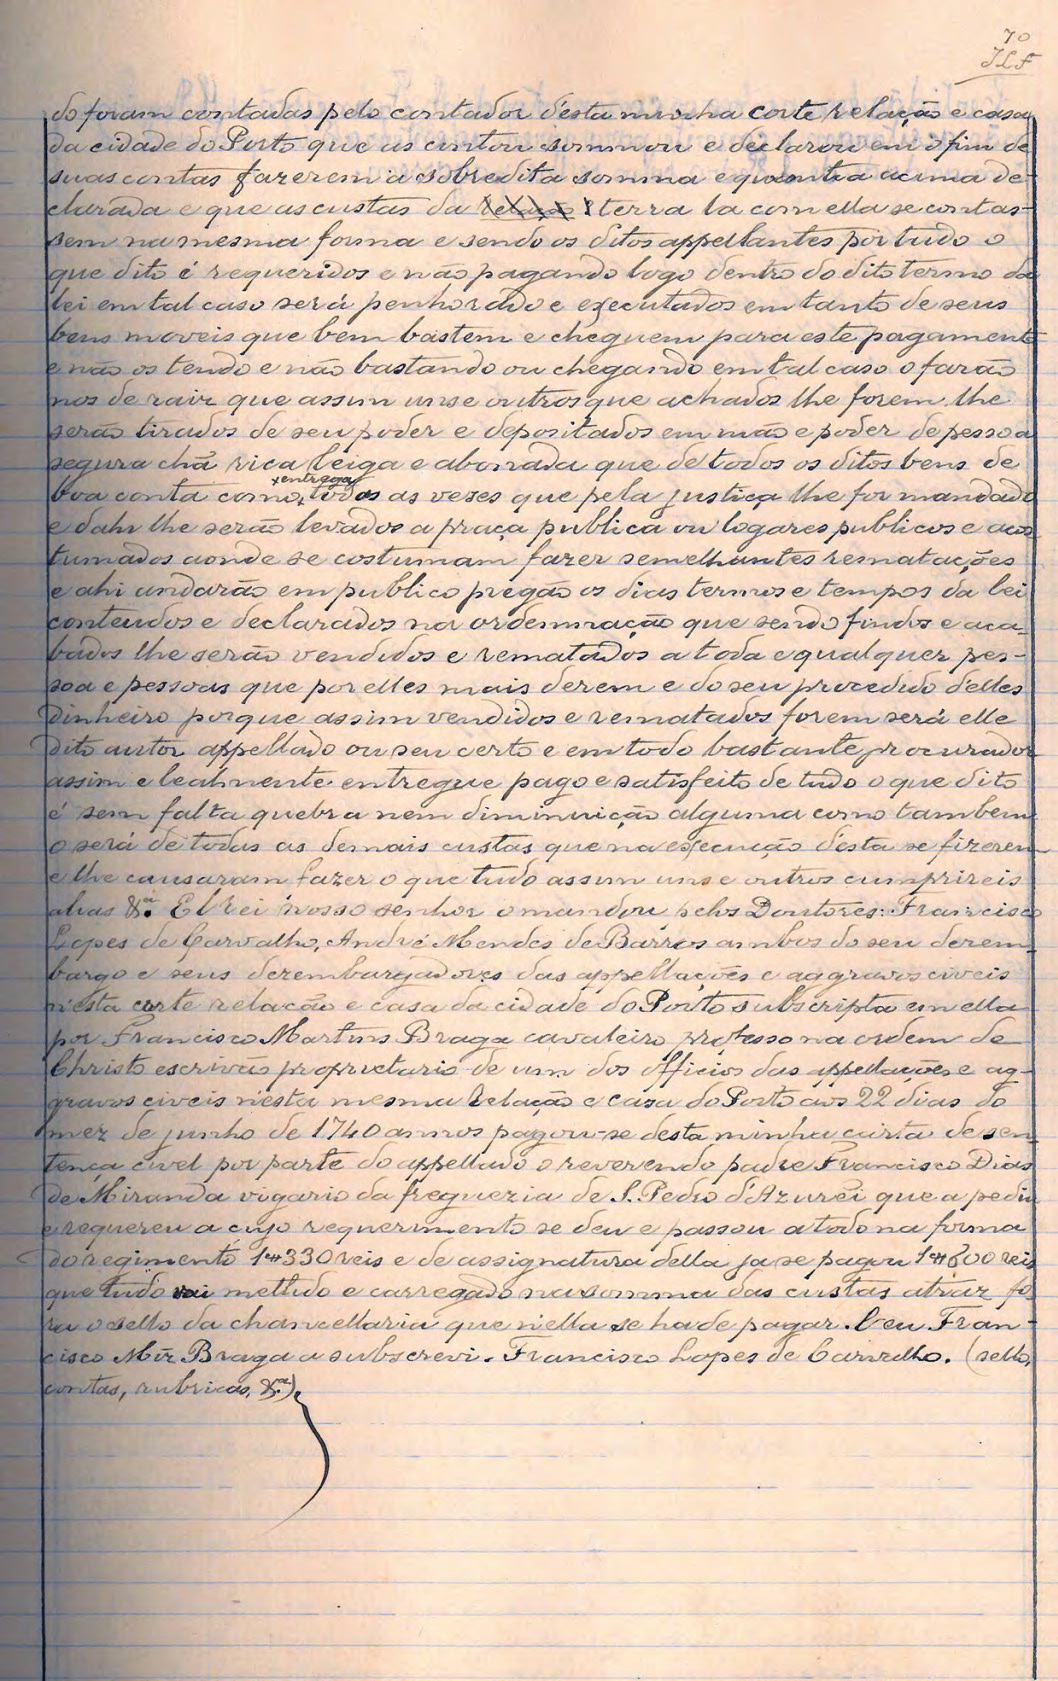 70
JLF
do foram contadas pelo contador d'esta minha corte relação e casa
da cidade do Porto que as contou sommou e declarou em o fim de
suas contas fazerem a sobredita somma e quantia acima de-
clarada e que as custas da terra la com ella se contas-
sem na mesma forma e sendo os ditos appellantes por tudo o
que dito é requeridos e não pagando logo dentro do dito termo da
lei em tal caso será penhorado e executados em tanto de seus
bens moveis que bem bastem e cheguem para este pagamento
e não os tendo e não bastando ou chegando em tal caso o farão
nos de raiz que assim uns e outros que achados lhe forem lhe
serão tirados de seu poder e depositados em mão e poder de pessoa
segura chã rica leiga e abonada que de todos os ditos bens de
boa conta como entrega todas as vezes que pela justiça lhe for mandado
e dahi lhe serão levados a praça publica ou logares publicos e acos
tumados aonde se costumam fazer semelhantes rematações
e ahi andarão em publico pregão os dias termos e tempos da lei
conteudos e declarados na ordennação que sendo findos e aca-
bados lhe serão vendidos e rematados a toda e qualquer pes-
soa e pessoas que por elles mais derem e do seu procedido d'elles
dinheiro porque assim vendidos e rematados forem será elle
dito autor appellado ou seu certo e em todo bastante procurador
assim e lealmente entregue pago e satisfeito de tudo o que dito
é sem falta quebra nem diminuição alguma como tambem
o será de todas as demais custas que na execução d'esta se fizerem
e lhe causaram fazer o que tudo assim uns e outros cumprireis
alvas &.ª El rei nosso senhor o mandou pelos Doutores: Francisco
Lopes de Carvalho, André Mendes de Barros ambos do seu dezem-
bargo e seus dezembargadores das appellações e aggravos civeis
n'esta corte relação e casa da cidade do Porto subscripta em ella
por Francisco Martins Braga cavaleiro professo na ordem de
Christo escrivão proprietario de um dos officios das appellações e ag-
gravos civeis n'esta mesma Relação e casa do Porto aos 22 dias do
mez de junho de 1740 annos pagou-se desta minha carta de sen-
tença civel por parte do appellado o reverendo padre Francisco Dias
de Miranda vigario da freguezia de S. Pedro d'Azurei que a pediu
e requereu a cujo requerimento se deu e passou a todo na forma
do regimento 1$330 reis e de assignatura della ja se pagou 1$600 reis
que tudo vai mettido e carregado na somma das custas atraz fo-
ra o sello da chancellaria que n'ella se hade pagar. E eu Fran-
cisco Miz Braga a subscrevi. Francisco Lopes de Carvalho. (sello,
contas, rubricas, &.ª).